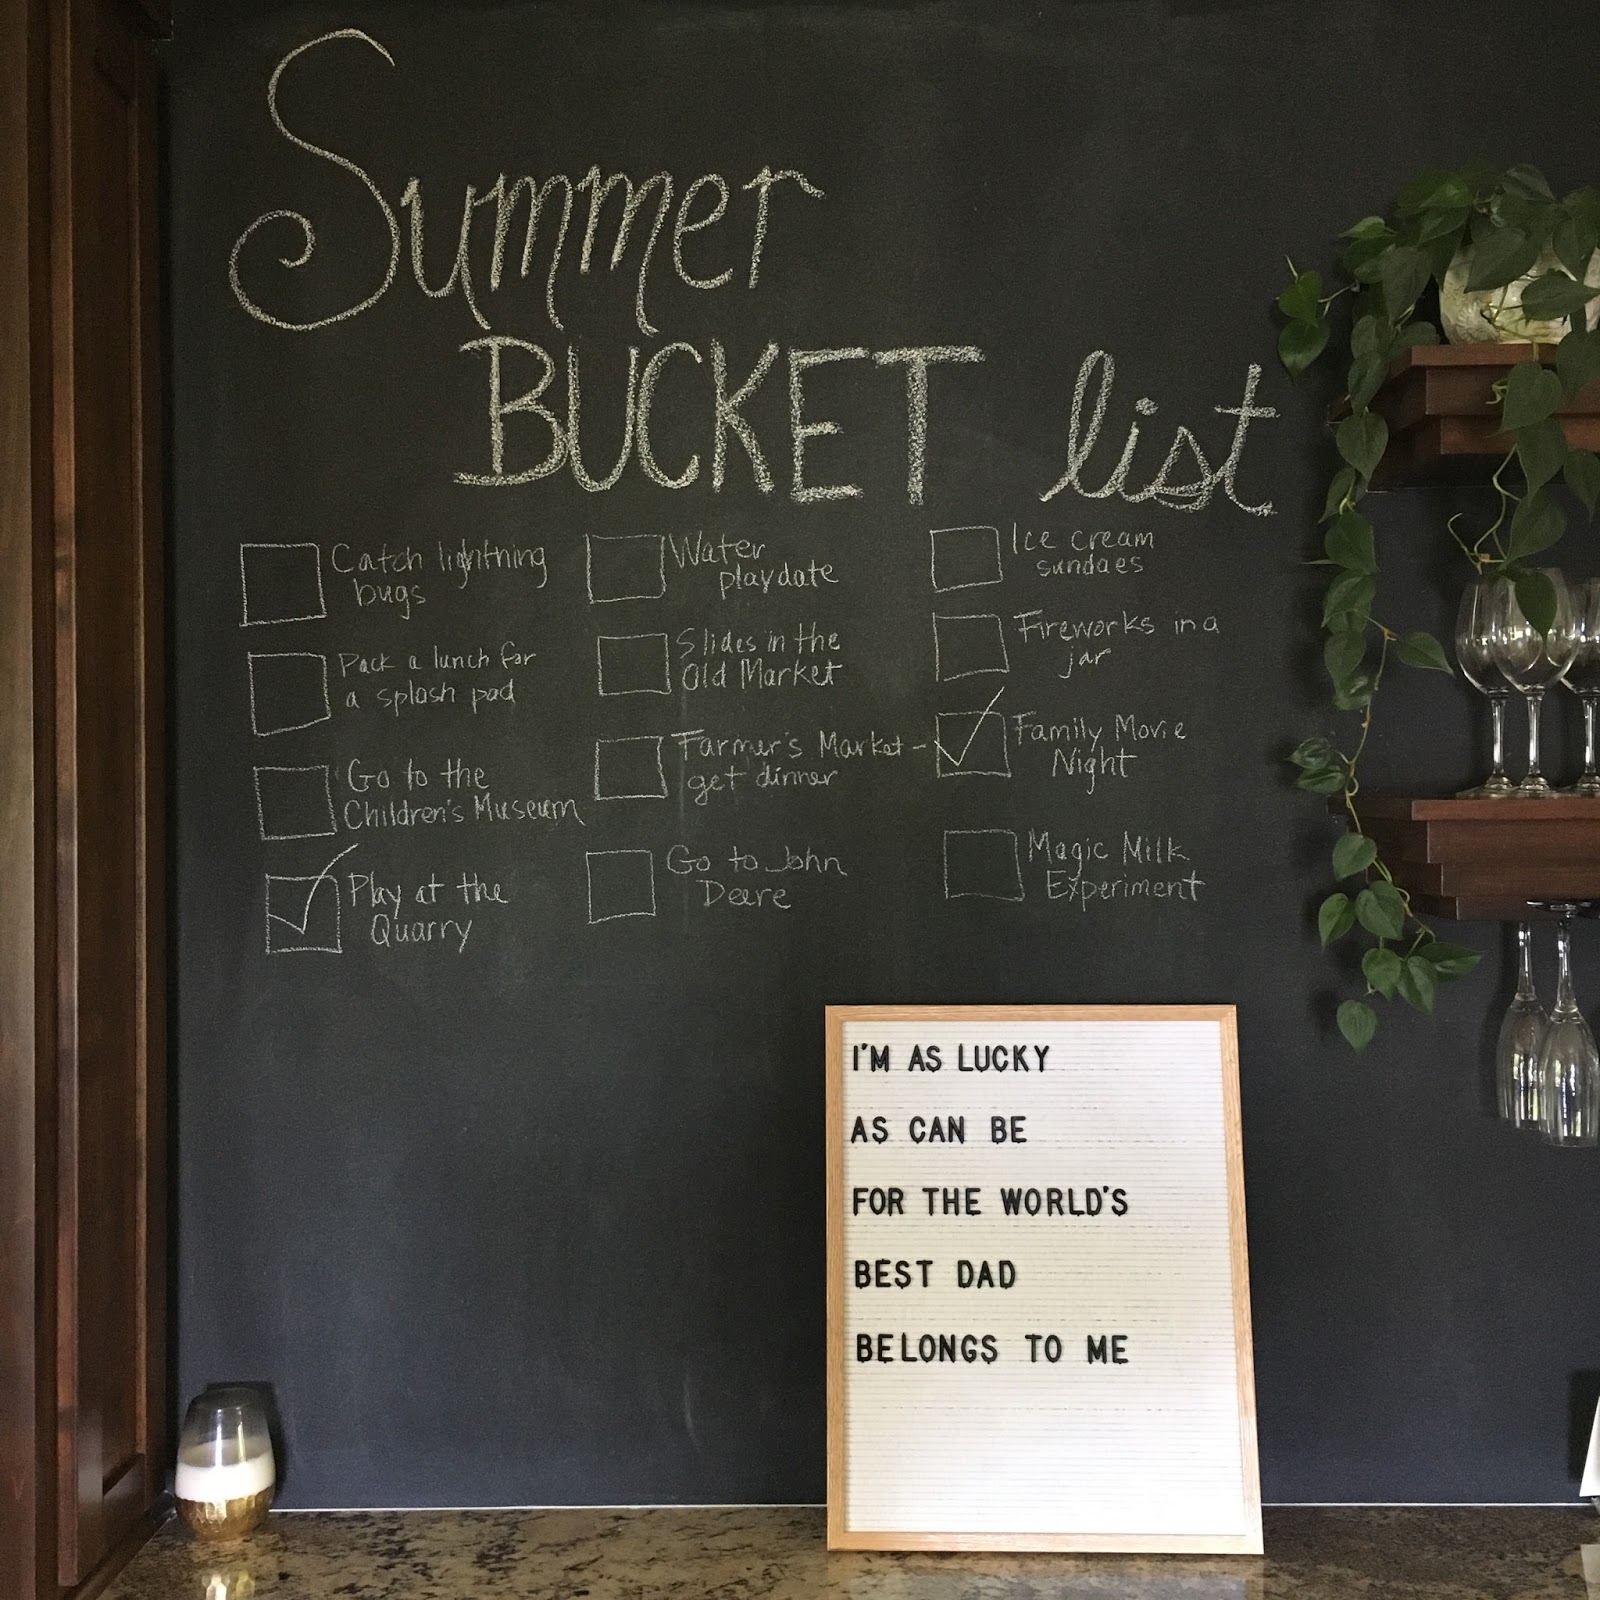 Summer
BUCKET list
Catch lightning
bugs
Pack a lunch for
a splash pad
Go to the
Children's Museum
Play at the
Quarry
Water
playdate
Slides in the
Old Market
Farmer's Market -
get dinner
Go to John
Deere
Ice cream
sundaes
Fireworks in a
jar
Family Movie
Night
Magic Milk
Experiment
I'M AS LUCKY
AS CAN BE
FOR THE WORLD'S
BEST DAD
BELONGS TO ME